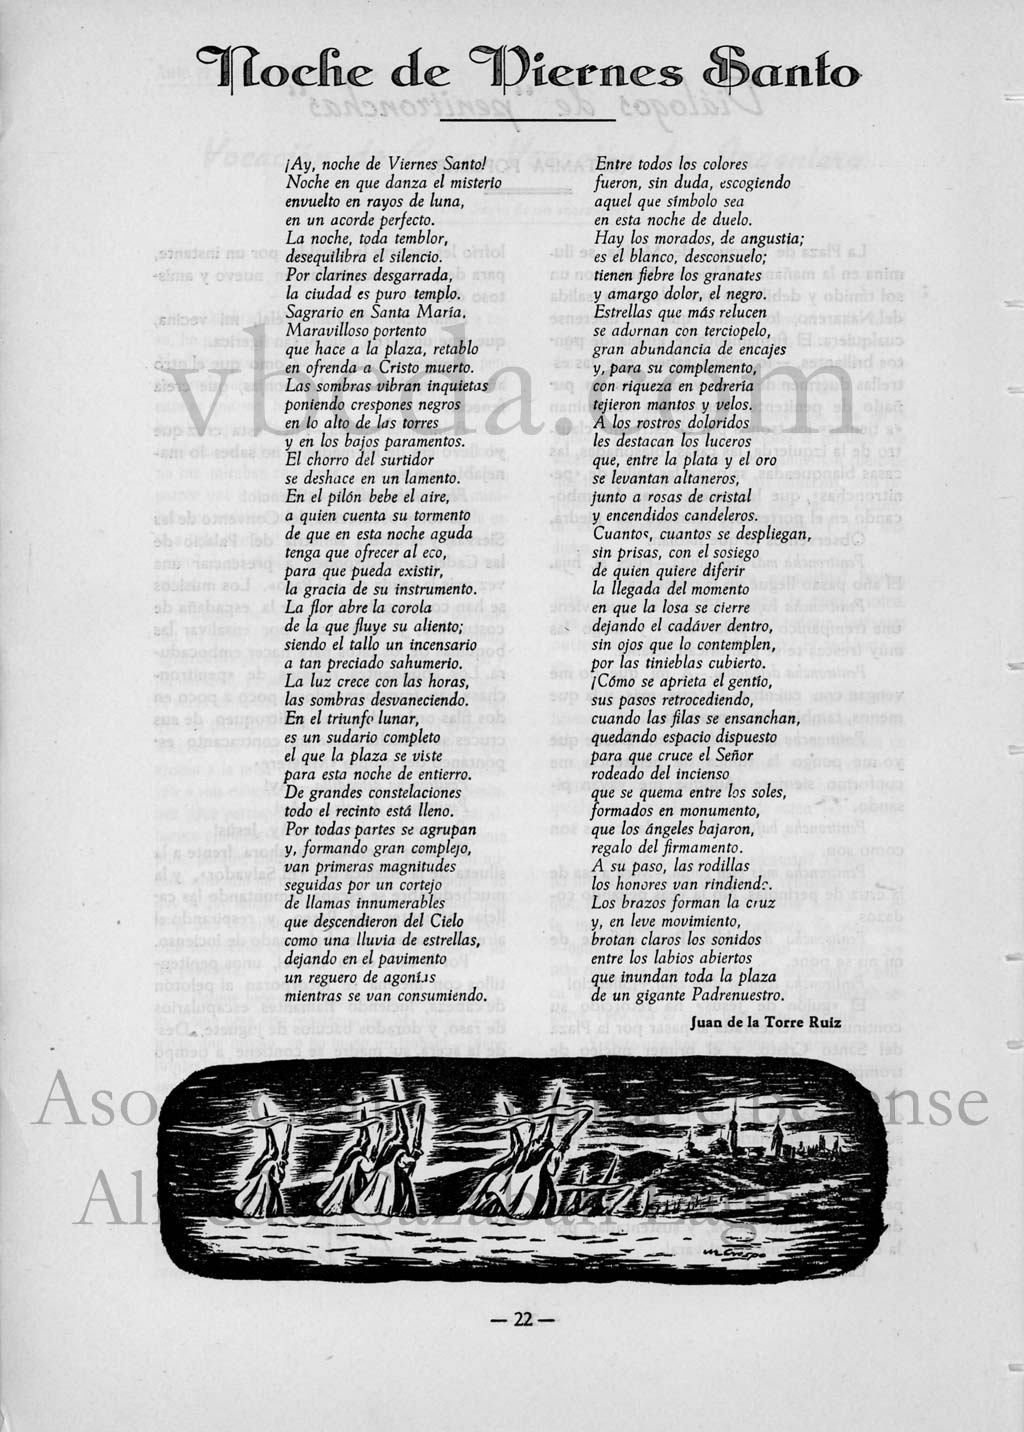 Noche de Viernes Santo
¡Ay, noche de Viernes Santo!
Noche en que danza el misterio
envuelto en rayos de luna,
en un acorde perfecto.
La noche, toda temblor,
desequilibra el silencio.
Por clarines desgarrada,
la ciudad es puro templo.
Sagrario en Santa María,
Maravilloso portento
que hace a la plaza, retablo
en ofrenda a Cristo muerto.
Las sombras vibran inquietas
poniendo crespones negros
en lo alto de las torres
y en los bajos paramentos.
El chorro del surtidor
se deshace en un lamento.
En el pilón bebe el aire,
a quien cuenta su tormento
de que en esta noche aguda
tenga que ofrecer al eco,
para que pueda existir,
la gracia de su instrumento.
La flor abre la corola
de la que fluye su aliento;
siendo el tallo un incensario
a tan preciado sahumerio.
La luz crece con las horas,
las sombras desvaneciendo.
En el triunfo lunar,
es un sudario completo
el que la plaza se viste
para esta noche de entierro.
De grandes constelaciones
todo el recinto está lleno.
Por todas partes se agrupan
y, formando gran complejo,
van primeras magnitudes
seguidas por un cortejo
de llamas innumerables
que descendieron del Cielo
como una lluvia de estrellas,
dejando en el pavimento
un reguero de agonías
mientras se van consumiendo.
Entre todos los colores
fueron, sin duda, escogiendo
aquel que símbolo sea
en esta noche de duelo.
Hay los morados, de angustia;
es el blanco, desconsuelo;
tienen fiebre los granates
y amargo dolor, el negro.
Estrellas que más relucen
se adornan con terciopelo,
gran abundancia de encajes
y, para su complemento,
con riqueza en pedrería
tejieron mantos y velos.
A los rostros doloridos
les destacan los luceros
que, entre la plata y el oro
se levantan altaneros,
junto a rosas de cristal
y encendidos candeleros.
Cuantos, cuantos se despliegan,
sin prisas, con el sosiego
de quien quiere diferir
la llegada del momento
en que la losa se cierre
dejando el cadáver dentro,
sin ojos que lo contemplen,
por las tinieblas cubierto.
¡Cómo se aprieta el gentío,
sus pasos retrocediendo,
cuando las filas se ensanchan,
quedando espacio dispuesto
para que cruce el Señor
rodeado del incienso
que se quema entre los soles,
formados en monumento,
que los ángeles bajaron,
regalo del firmamento.
A su paso, las rodillas
los honores van rindiendo.
Los brazos forman la cruz
y, en leve movimiento,
brotan claros los sonidos
entre los labios abiertos
que inundan toda la plaza
de un gigante Padrenuestro.
Juan de la Torre Ruiz
vbeda.com
M Crespo
— 22 —